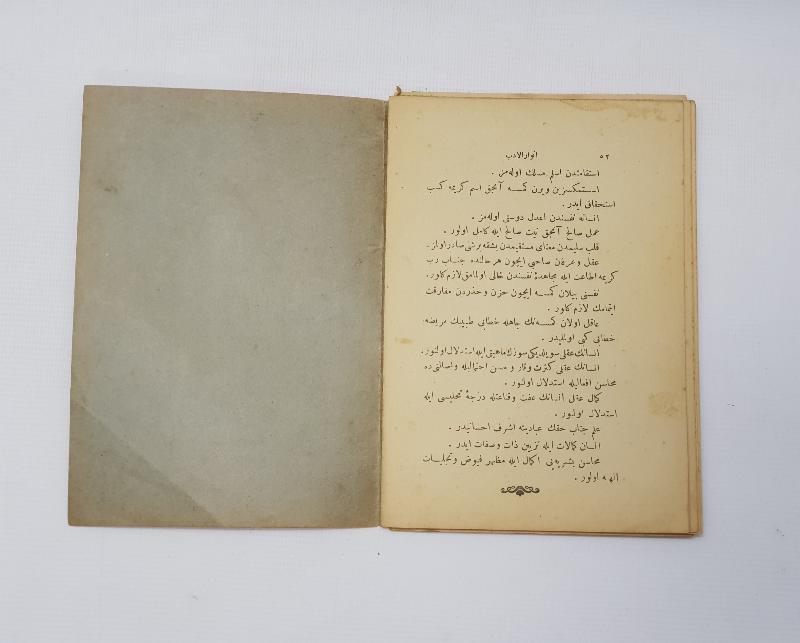 ٥٢ انوار الادب
استقامتدن اسلم مسلك اوله‌مز .
استمكسزين ويرن كمسه آنجق اسم كريمه كسب
استحقاق ايدر .
انسانه نفسندن اعدل دوست اوله‌مز .
عمل صالح آنجق نيت صالح ايله كامل اولور .
قلب سليمدن معناى مستقيمدن بشقه برشى صادر اولمز .
عقل وعرفان صاحبى ايچون هر حالنده جناب رب
كريمه اطاعت ايله مجاهدۀ نفسندن خالى اولمامق لازم كلور .
نفسنى بيلان كمسه ايچون حزن وحذردن مفارقت
ايتمامك لازم كلور .
عاقل اولان كمسه‌نك جاهله خطابى طبيبك مريضه
خطابى كبى اولمليدر .
انسانك عقلى سويلديكى سوزك ماهيتى ايله استدلال اولنور .
انسانك عقلى كثرت وقار و حسن احتماليله واصالتى ده
محاسن افعاليله استدلال اولنور .
كمال عقل انسانك عفت وقناعتله درجۀ تحليسى ايله
استدلال اولنور .
علم جناب حقك عبادينه اشرف احسانيدر .
انسان كمالات ايله تزيين ذات وصفات ايدر .
محاسن بشريه‌يى اكمال ايله مظهر فيوض وتجليات
الهيه اولور .